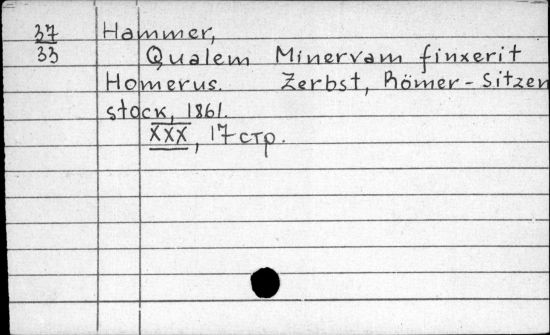 37 Hammer,
33 Qualem Minervam finxerit
Homerus. Zerbst, Römer-Sitzen
stock, 1861.
XXX, 17 стр.